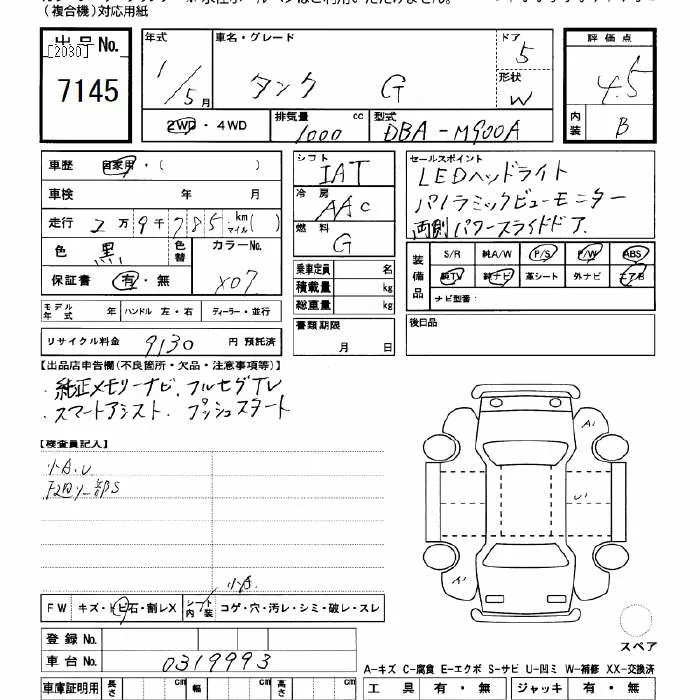 (複合機)対応用紙
出品No. [2030] 7145
年式 1/5月
車名・グレード タンク G
ドア 5
形状 W
評価点 4.5
内装 B
2WD・4WD
排気量 1000 cc
型式 DBA-M900A
車歴 自家用・( )
車検 年 月
走行 2万9千785km マイル( )
色 黒 色替 カラーNo. X07
保証書 有・無
シフト IAT
冷房 AAC
燃料 G
乗車定員 名
積載量 kg
総重量 kg
セールスポイント
LEDヘッドライト
パノラミックビューモニター
両側パワースライドドア.
装備品 S/R 純A/W P/S P/W ABS
純TV 純ナビ 革シート 外ナビ エアB
ナビ型番:
モデル年式 年 ハンドル 左・右 ディーラー・並行
書類期限 月 日
後日品
リサイクル料金 9130 円 預託済
【出品店申告欄(不良箇所・欠品・注意事項等)】
・純正メモリーナビ. フルセグTV
・スマートアシスト. プッシュスタート
【検査員記入】
小A.U
A1
U1
A1
小A.
FW キズ・トビ石・割レX シート内装 コゲ・穴・汚レ・シミ・破レ・スレ
スペア
登録No.
車台No. 0319993
A-キズ C-腐食 E-エクボ S-サビ U-凹ミ W-補修 XX-交換済
車庫証明用 長さ cm 幅 cm 高さ cm
工具 有・無 ジャッキ 有・無